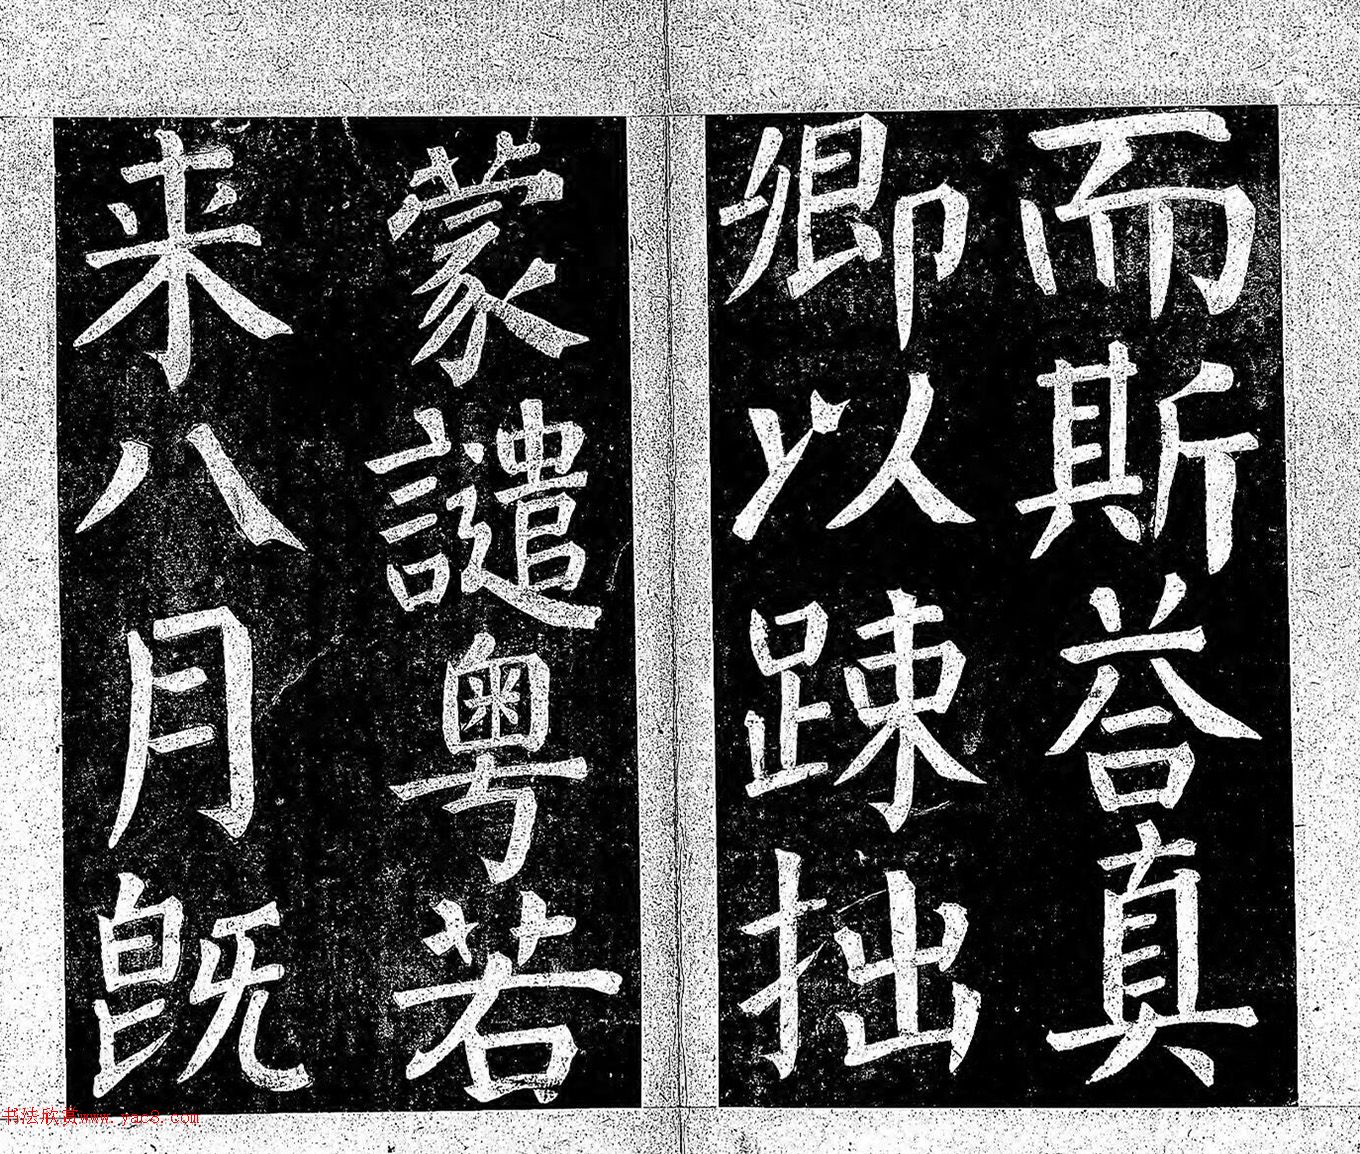 而斯荅真
卿以踈拙
蒙譴粤若
来八月既
书法欣赏www.yac8.com